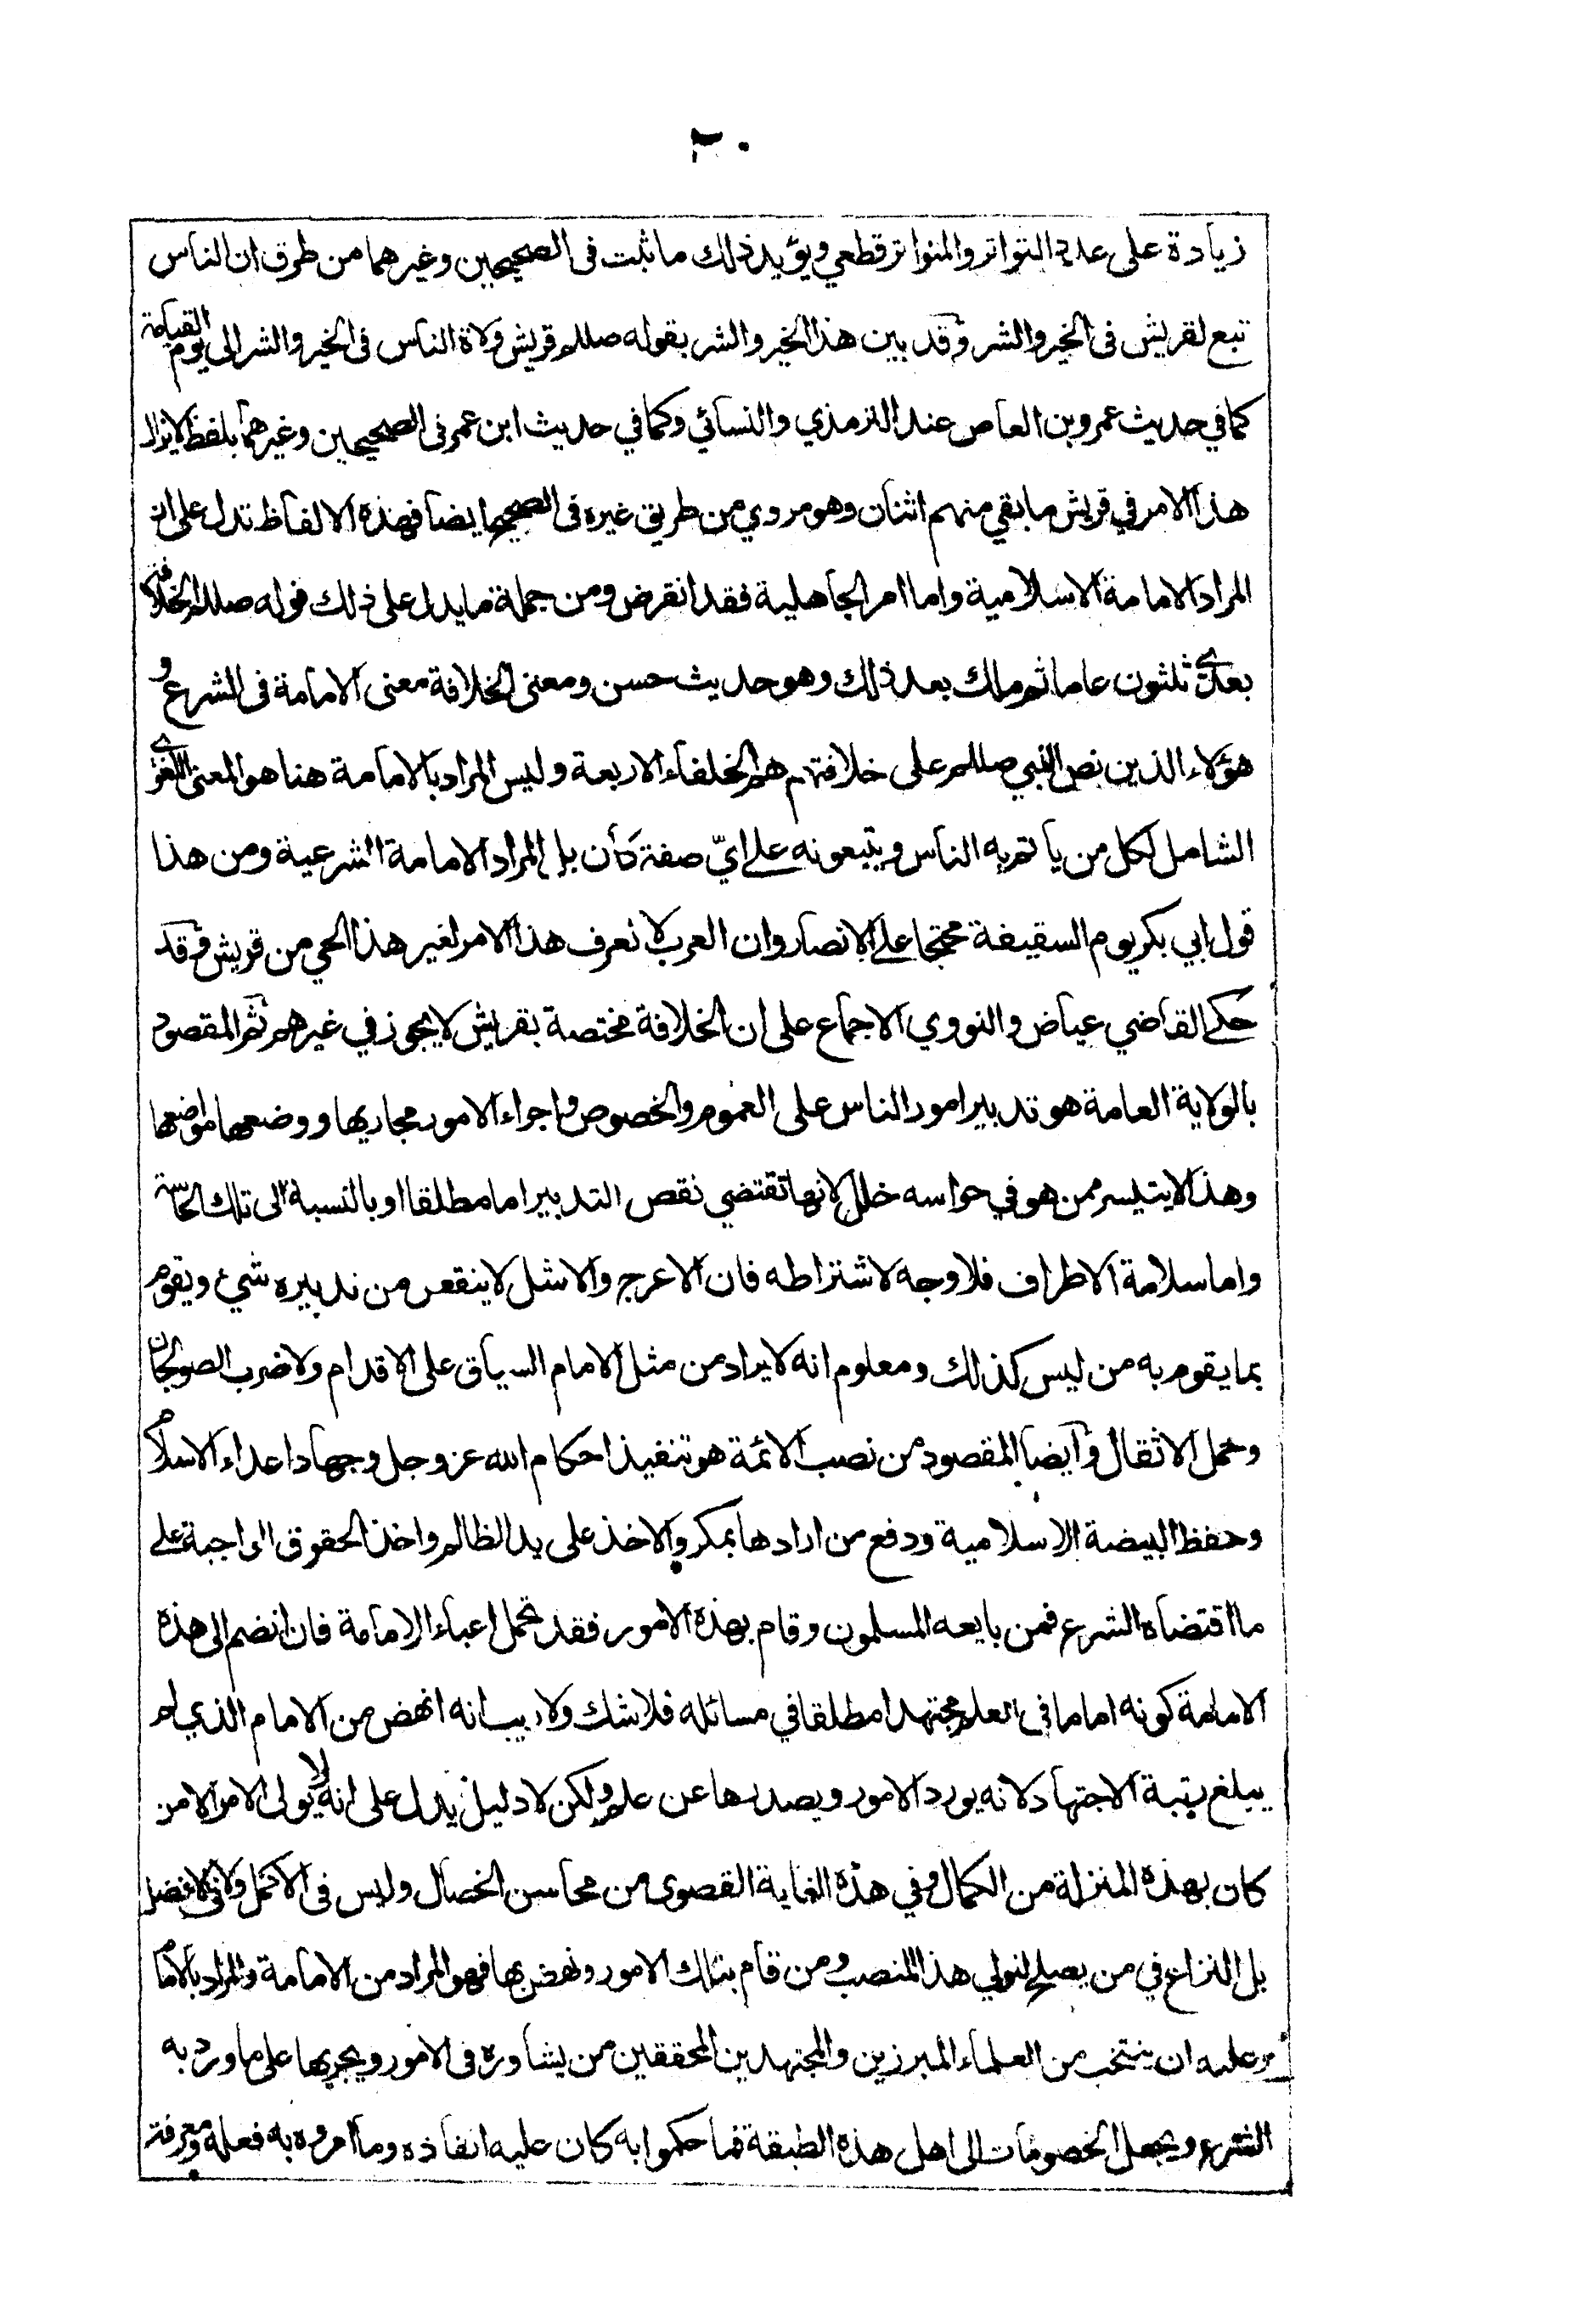 ٣٠
زيادة على عدد التواتر والمتواتر قطعي ويؤيد ذلك ما ثبت فى الصحيحين وغيرهما من طرق ان الناس
تبع لقريش فى الخير والشر وقد بين هذا الخير والشر بقوله صللم قريش ولاة الناس فى الخير والشر الى يوم القيامة
كما في حديث عمرو بن العاص عند الترمذي والنسائي وكما في حديث ابن عمر فى الصحيحين وغيرهما بلفظ لا يزال
هذا الامر في قريش ما بقي منهم اثنان وهو مروي من طريق غيره فى الصحيح ايضا فهذه الالفاظ تدل على ان
المراد الامامة الاسلامية واما امر الجاهلية فقد انقرض ومن جملة ما يدل على ذلك قوله صللم الخلافة
بعدي ثلثون عاما ثم ملك بعد ذلك وهو حديث حسن ومعنى الخلافة معنى الامامة فى الشرع و
هؤلاء الذين نص النبي صللم على خلافتهم هم الخلفاء الاربعة وليس المراد بالامامة هنا هو المعنى اللغوي
الشامل لكل من يأتم به الناس ويتبعونه على ايّ صفة كان بل المراد الامامة الشرعية ومن هذا
قول ابي بكر يوم السقيفة محتجا على الانصار وان العرب لا تعرف هذا الامر لغير هذا الحي من قريش وقد
حكى القاضي عياض والنووي الاجماع على ان الخلافة مختصة بقريش لا يجوز في غيرهم ثم المقصود
بالولاية العامة هو تدبير امور الناس على العموم والخصوص واجراء الامور مجاريها ووضعها مواضعها
وهذا لا يتيسر ممن هو في حواسه خلل لانها تقتضي نقص التدبير اما مطلقا او بالنسبة الى تلك الحاسة
واما سلامة الاطراف فلا وجه لاشتراطه فان الاعرج والاشل لا ينقص من تدبيره شيء ويقوم
بما يقوم به من ليس كذلك ومعلوم انه لا يراد من مثل الامام السباق على الاقدام ولا ضرب الصولجان
وحمل الاثقال وأيضا المقصود من نصب الائمة هو تنفيذ احكام الله عز وجل وجهاد اعداء الاسلام
وحفظ البيضة الاسلامية ودفع من ارادها بمكر والاخذ على يد الظالم واخذ الحقوق الواجبة على
ما اقتضاه الشرع فمن بايعه المسلمون وقام بهذه الامور فقد تحمل اعباء الامامة فان انضم الى هذه
الامامة كونه اماما فى العلم مجتهدا مطلقا في مسائله فلا شك ولا ريب انه انهض من الامام الذي لم
يبلغ رتبة الاجتهاد لانه يورد الامور ويصدرها عن علم ولكن لا دليل يدل على انه لا يولى الامر الا من
كان بهذه المنزلة من الكمال وفي هذه الغاية القصوى من محاسن الخصال وليس فى الاكمل ولا فى الافضل
بل النزاع في من يصلح لتولي هذا المنصب ومن قام بتلك الامور ونهض بها فهو المراد من الامامة والمراد بالامام
وعليه ان ينتخب من العلماء المبرزين والمجتهدين المحققين من يشاوره فى الامور ويجريها على ما ورد به
الشرع ويجعل الخصومات الى اهل هذه الطبقة فما حكموا به كان عليه انفاذه وما امروه به فعله ومعرفة